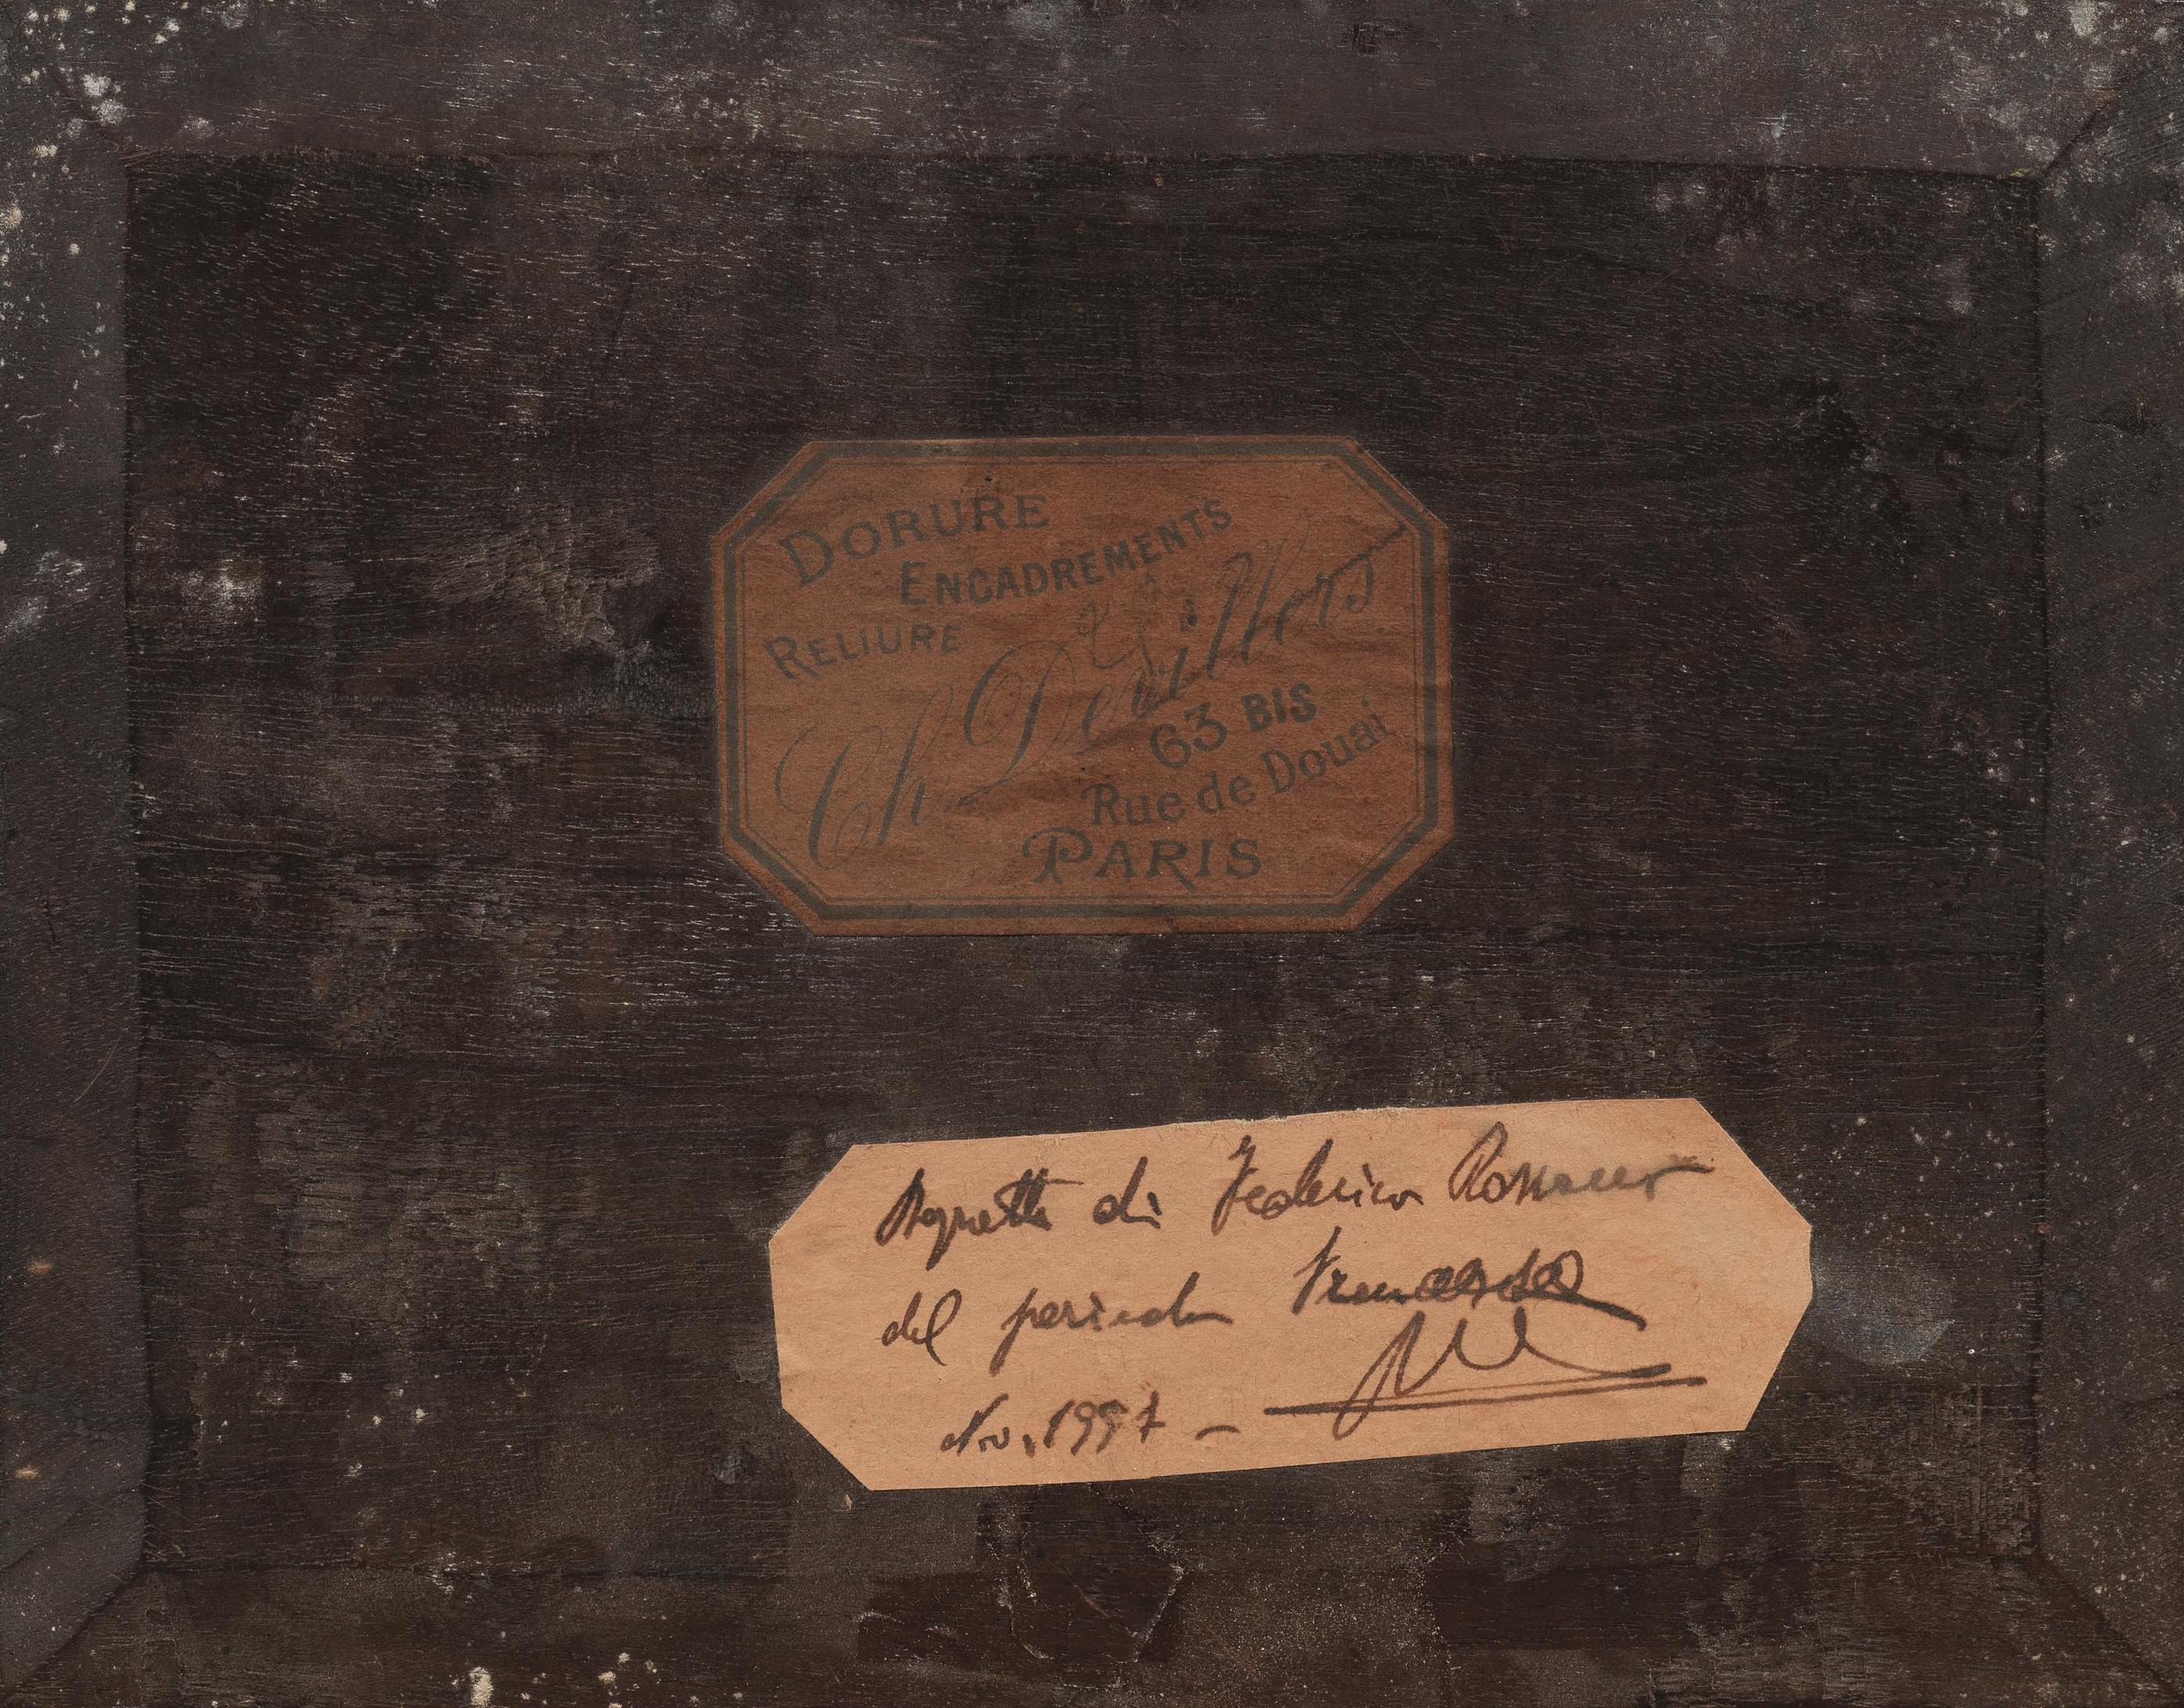 DORURE
ENCADREMENTS
RELIURE
Ch. Devillers
63 BIS
Rue de Douai
PARIS
di Federico Rossano
del periodo Francese
Nov. 1997 -